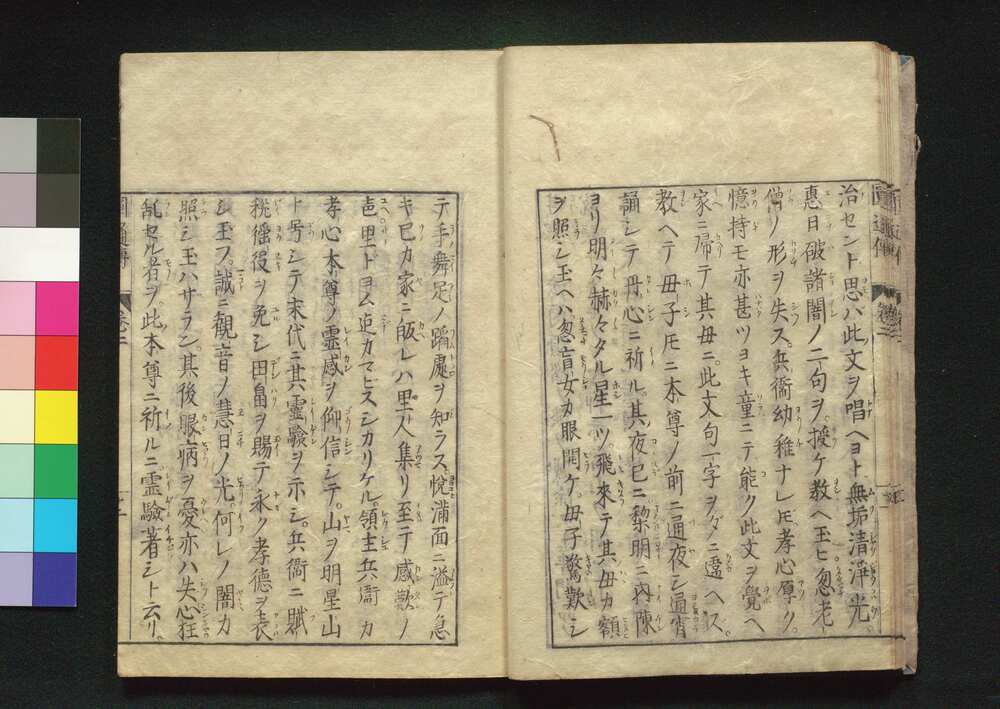 治セント思ハ此文ヲ唱ヘヨト無垢清浄光
恵日破諸闇ノ二句ヲ授ケ教ヘ玉ヒ忽老
僧ノ形ヲ失ス兵衞幼稚ナレ𪜈孝心厚ク
憶持モ亦甚ツヨキ童ニテ能ク此文ヲ覚ヘ
家ニ帰テ其母ニ此文句一字ヲダニ違ヘス
教ヘテ母子𪜈ニ本尊ノ前ニ通夜シ通宵
誦シテ丹心ニ祈ル其夜已ニ黎明ニ内陳
ヨリ明々赫々タル星一ツ飛来テ其母カ額
ヲ照シ玉ヘハ忽盲女カ眼開ケ母子驚歎シ
テ手舞足ノ蹈處ヲ知ラス悦満面ニ溢テ急
キ已カ家ニ皈レハ里人集リ至テ感歎ノ
邑里トヨム迠カマヒスシカリケル領主兵衞カ
孝心本尊ノ霊感ヲ仰信シテ山ヲ明星山
ト号シテ末代ニ其霊驗ヲ示シ兵衞ニ賦
税徭役ヲ免シ田畠ヲ賜テ永ク孝德ヲ表
シ玉フ誠ニ観音ノ慧日ノ光何レノ闇カ
照シ玉ハサラン其後眼病ヲ憂亦ハ失心狂
乱セル者ヲ此本尊ニ祈ルニ霊驗著シト云リ